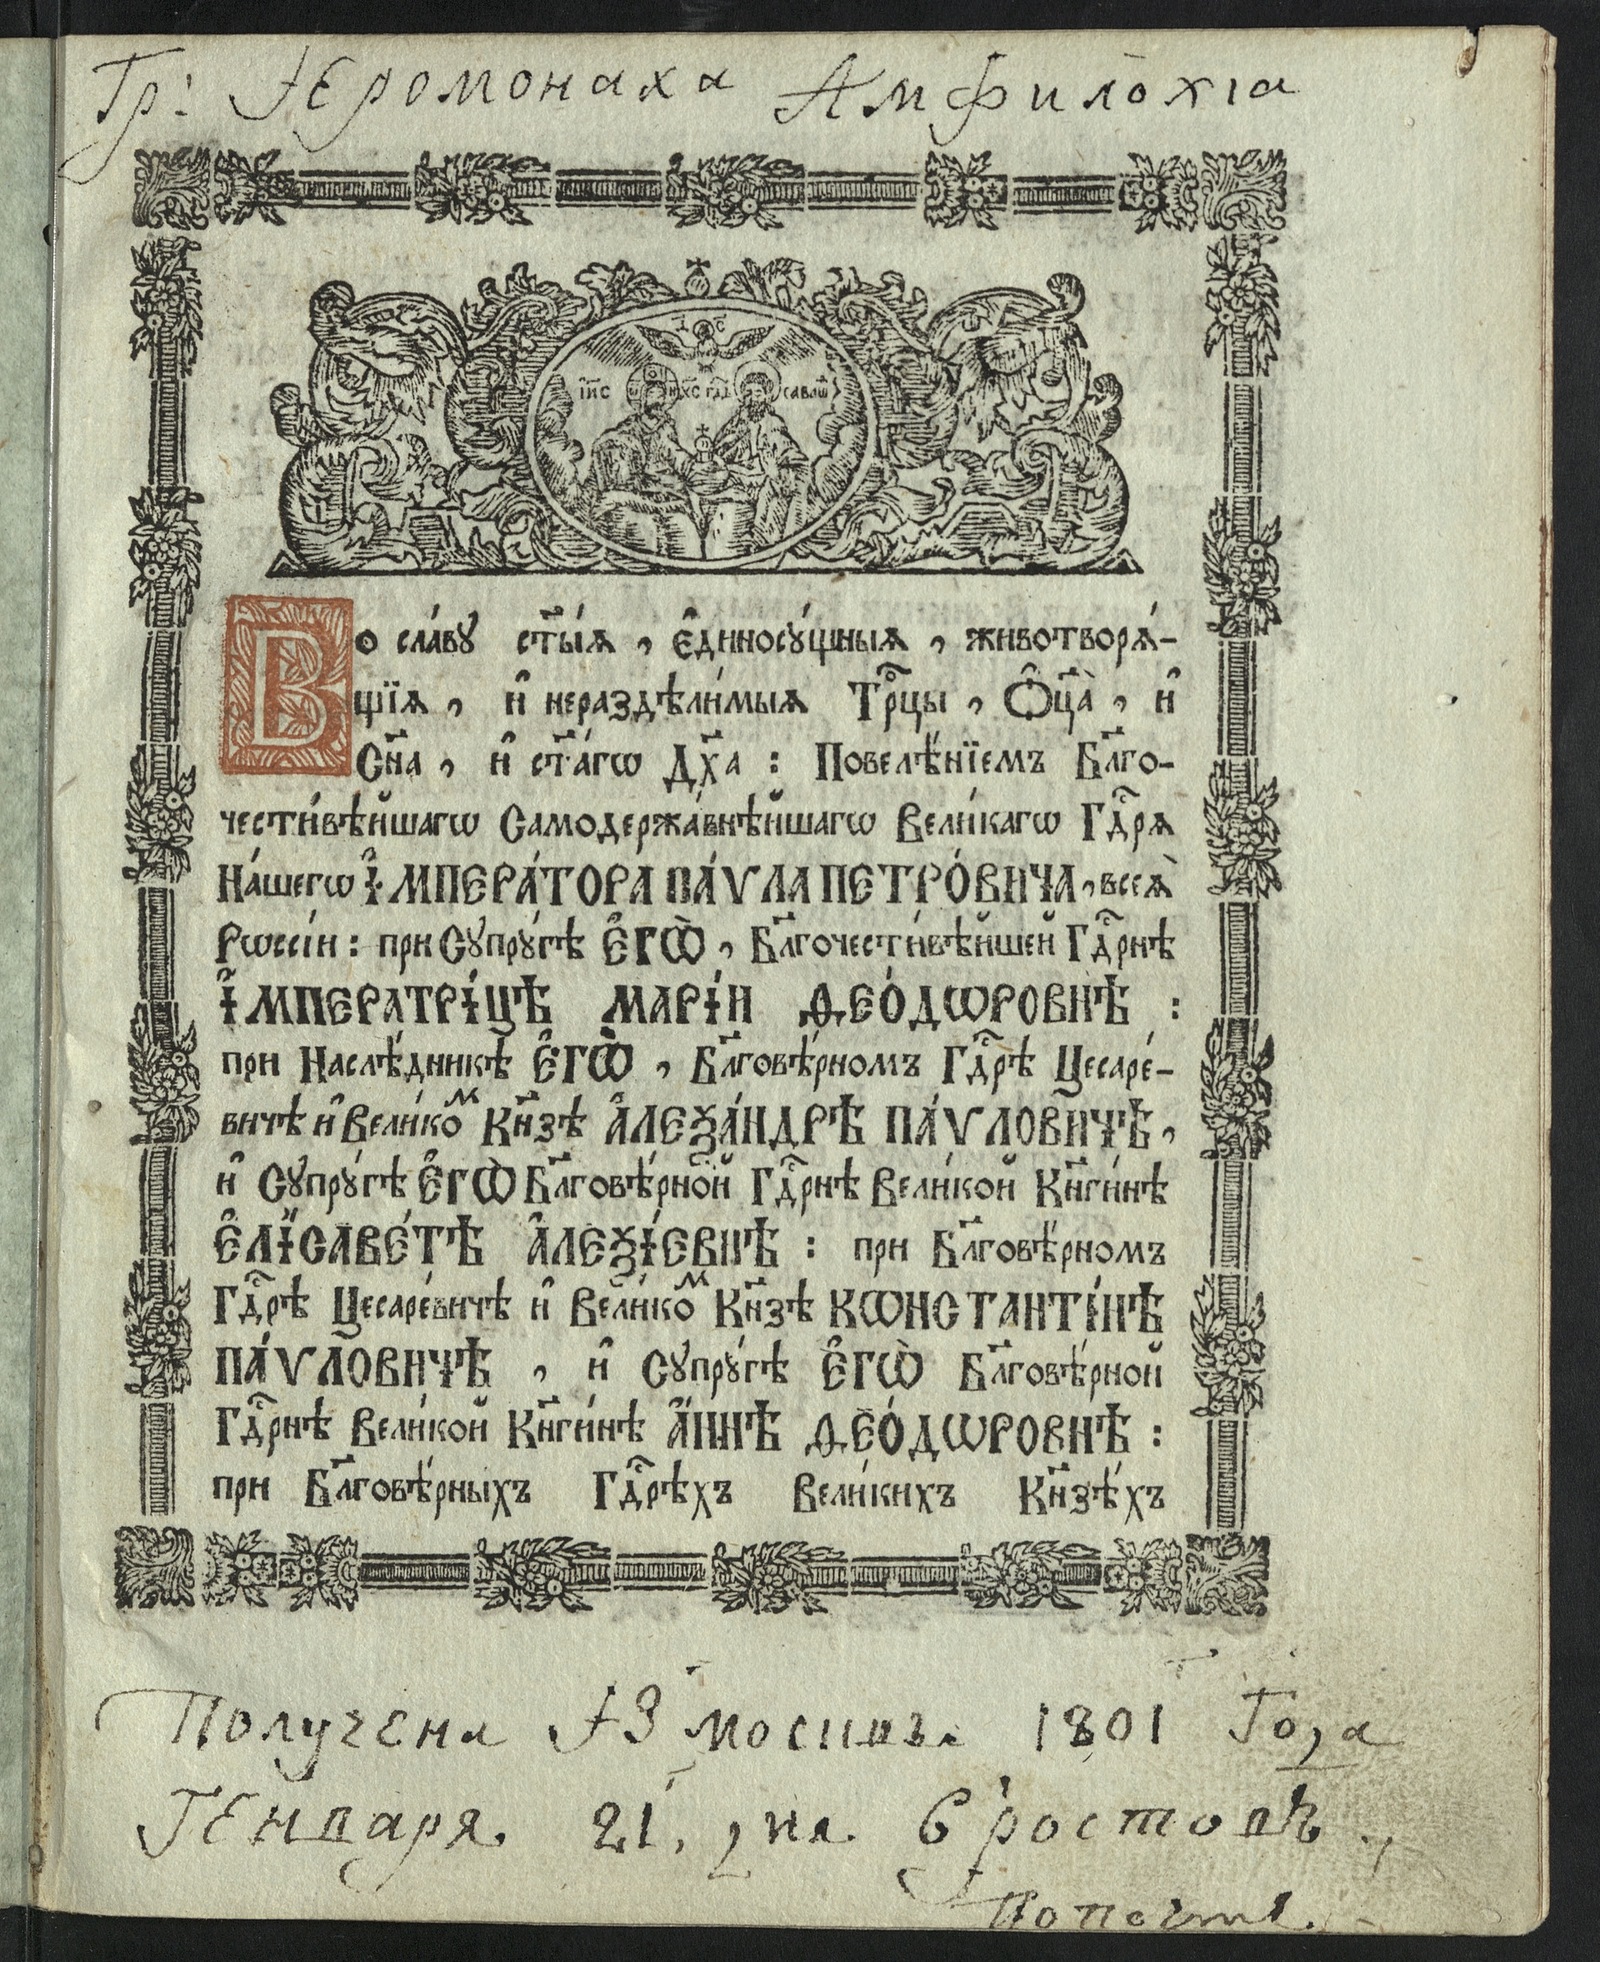 Гр: Иеромонаха Амфилохіа
І҃С
І҃ИС Х҃С Гдⷭ҇ь саваѡѳ
Во сла́вꙋ ст҃ы́ѧ, є҆диносꙋ́щныѧ, животворѧ́-
щїѧ, и҆ нераздѣли́мыѧ Трⷪ҇цы, Ѻ҆ц҃а̀, и҆
Сн҃а, и҆ ст҃а́гѡ Дх҃а : Повелѣ́нїемъ Бл҃го-
чести́вѣйшагѡ Самодержа́внѣйшагѡ Вели́кагѡ Гдⷭ҇рѧ
На́шегѡ І҆МПЕРА́ТОРА ПА́ѴЛА ПЕТРО́ВИЧА, всеѧ̀
Рѡссі́и : при Сꙋпрꙋ́гѣ Є҆ГѠ̀, Бл҃гочести́вѣйшей Гдⷭ҇рнѣ
І҆МПЕРАТРІ́ЦѢ МАРІ́И Ѳ҆ЕО́ДѠРОВНѢ :
при Наслѣ́дникѣ Є҆ГѠ̀, Бл҃говѣ́рномъ Гдⷭ҇рѣ Цесаре́-
вичѣ и҆ Вели́коⷨ Кн҃зѣ А҆ЛЕѮА́НДРѢ ПА́ѴЛОВИЧѢ,
и҆ Сꙋпрꙋ́гѣ Є҆ГѠ̀ Бл҃говѣ́рной Гдⷭ҇рнѣ Вели́кой Кн҃ги́нѣ
Є҆ЛІСАВЕ́ТѢ А҆ЛЕѮІ́ЕВНѢ : при Бл҃говѣ́рномъ
Гдⷭ҇рѣ Цесаре́вичѣ и҆ Вели́коⷨ Кн҃зѣ КѠНСТАНТІ́НѢ
ПА́ѴЛОВИЧѢ, и҆ Сꙋпрꙋ́гѣ Є҆ГѠ̀ Бл҃говѣ́рной
Гдⷭ҇рнѣ Вели́кой Кн҃ги́нѣ А҆́ННѢ Ѳ҆ЕО́ДѠРОВНѢ :
при Бл҃говѣ́рныхъ Гдⷭ҇рѣхъ Вели́кихъ Кн҃зѣ́хъ
Получена Из Москвы 1801 Года
Генваря 21, дня в ростовѣ,
По почтѣ.